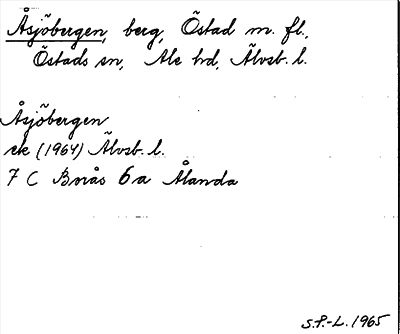 Åsjöbergen, berg, Östad m. fl.,
Östads sn, Ale hd, Älvsb. l.
Åsjöbergen
ek (1964) Älvsb. l.
7 C Borås 6a Ålanda
S.P.-L. 1965